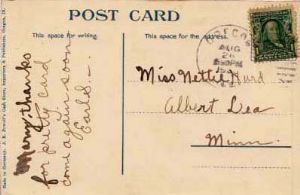 POST CARD
This space for writing.
This space is for address.
Many thanks
for pretty card
come again soon
Earl
Miss Nettie Hurd
Albert Lea
Minn.
AUG